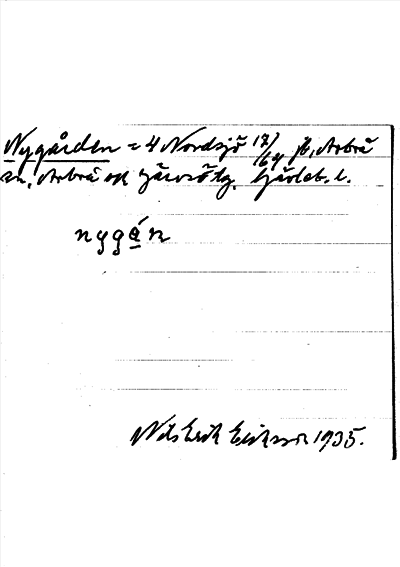 Nygården = 4 Nordsjö 17/64 jb, Arbrå
sn. Arbrå och Järvsö tg. Gävleb. l.
nygá̱n
Nils Erik Eriksson 1935.